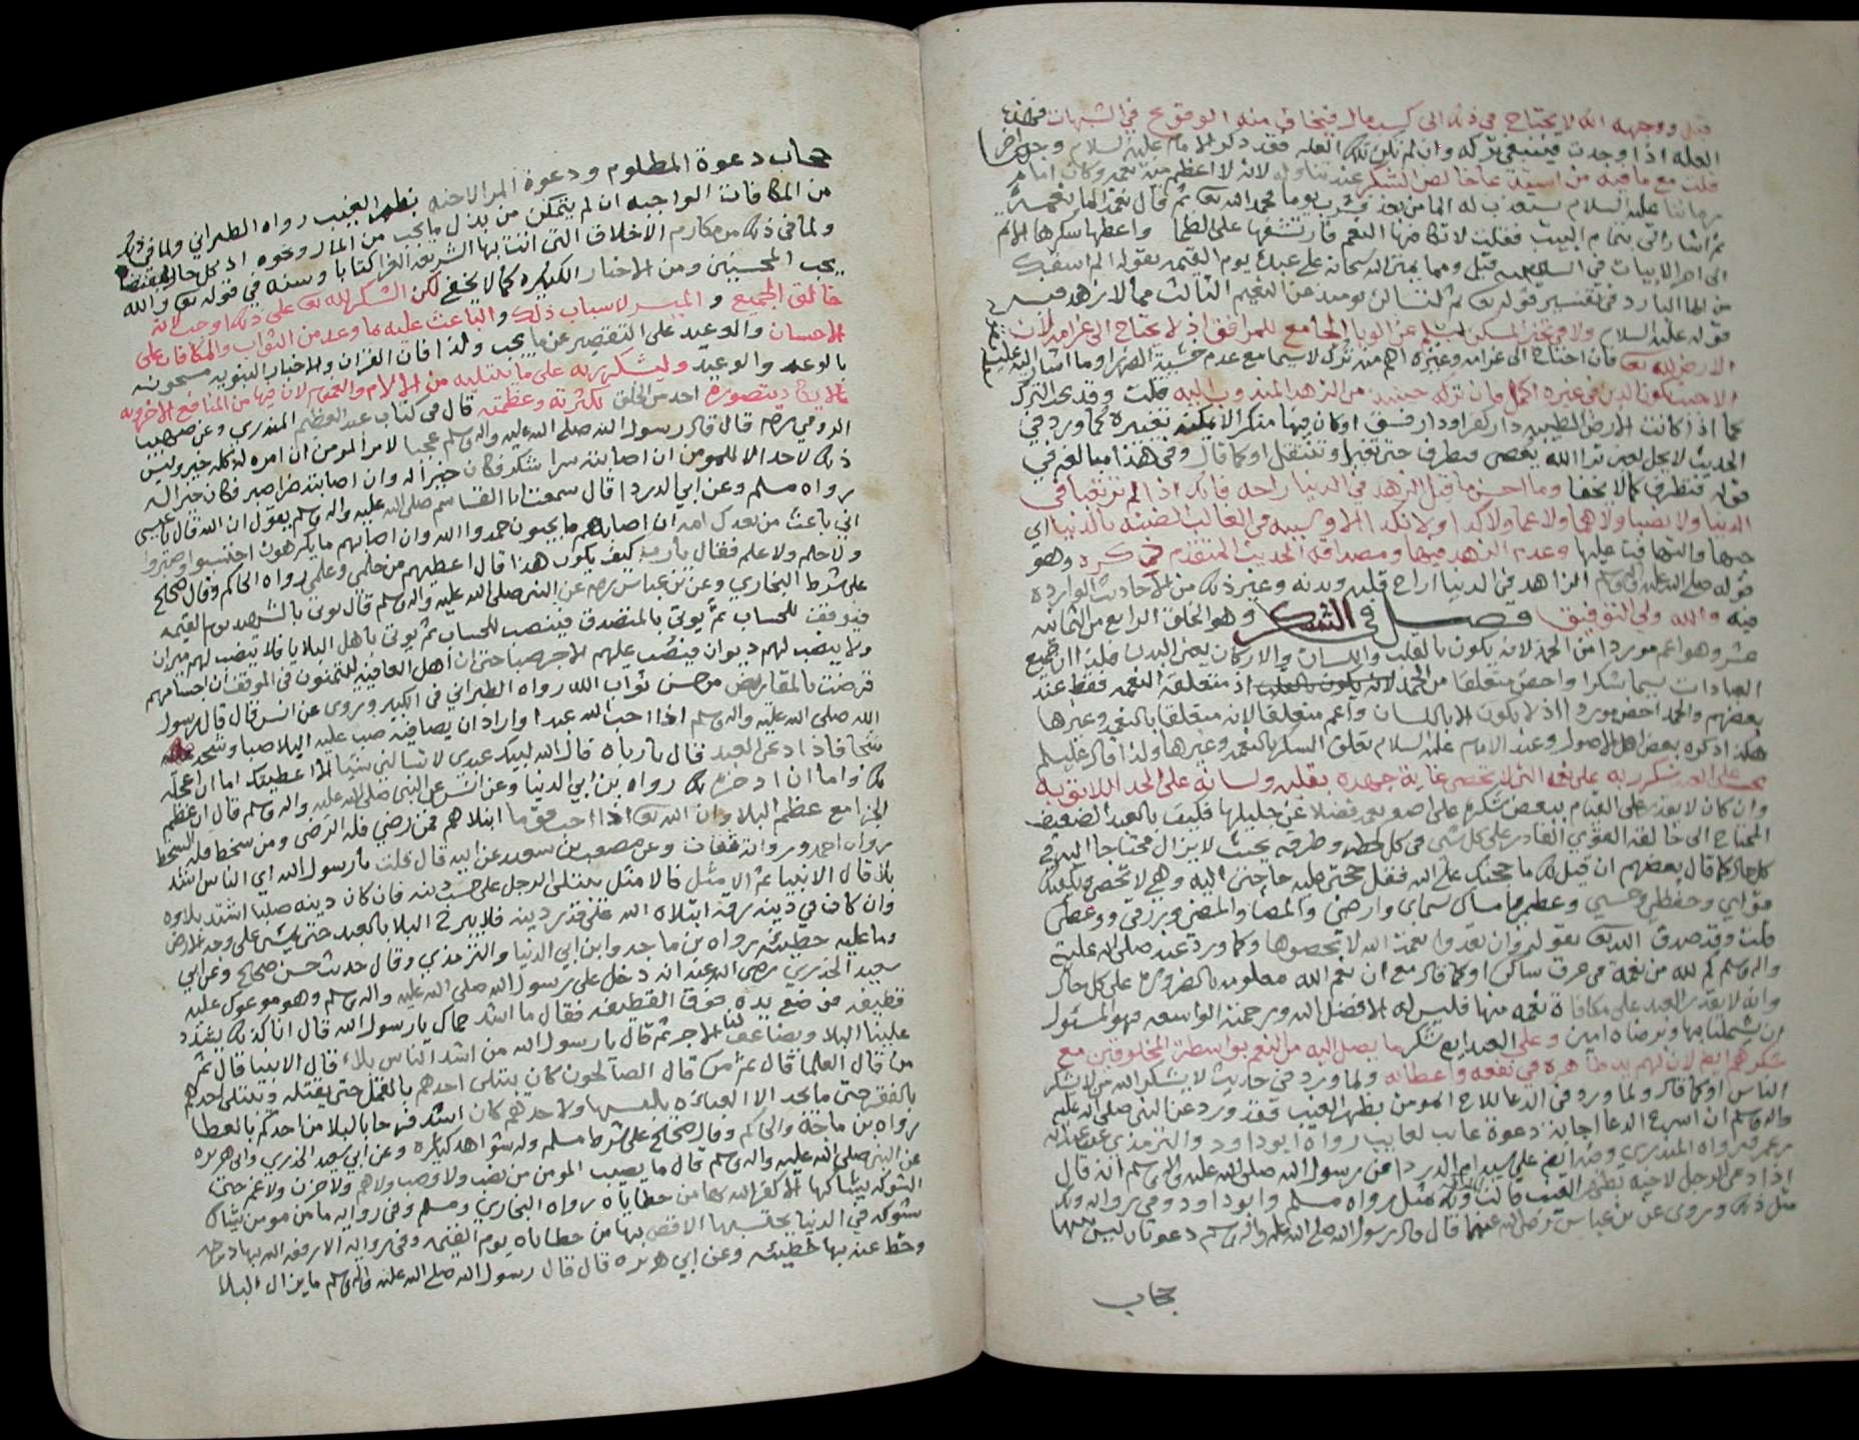 قيل ووجهه انه لا يحتاج في ذلك الى كسب مال فيخاف منه الوقوع في الشبهات
العله اذا وجدت فينبغي تركه وان لم تكن تلك العله فقد ذكر الامام عليه السلام
قلت مع ما فيه من خالص الشكر عند تناوله لانه لا اعظم منه نعمه وكان امام
زماننا عليه السلام يستعذب له الما من بعد فشرب يوما فحمد الله تعالى ثم قال نعمة الما نعمة
ثم اشار الى تمام البيت فقلت
الى اخر الابيات في السلام قيل ومما يمتن الله سبحانه على عبده يوم القيمه بقوله الم اسقك
من الما البارد في تفسير قوله تعالى ثم لتسالن يومئذ عن النعيم الثالث مما لا زهد فيه
قوله عليه السلام ولا في تخير المسكن ليسلم عن الوبا الجامع للمرافق اذ لا يحتاج الى غرامه لان
الارض لله تعالى فان احتاج الى غرامه وغيره اهم منه ترك لا سيما مع عدم خشية الضرر
فان تركه حينئذ من الزهد المندوب اليه قلت وقد يجب الترك
كما اذا كانت الارض الطيبه دار كفر او دار فسق او كان فيها منكر لا يمكنه تغييره كما ورد في
الحديث لا يحل لعين ترا الله يعصى فتطرف حتى تغير او تنتقل او كما قال وفي هذا مبالغه في
قوله فتطرف كما لا يخفا وما احسن ما قيل الزهد في الدنيا راحه
الدنيا ولا نصبا ولا هما ولا غما ولا كدا ولا نكدا الا وسببه في الغالب الضنه بالدنيا اي
حبها والتهافت عليها وعدم الزهد فيها ومصداقه الحديث المتقدم ذكره وهو
قوله صلى الله عليه واله وسلم الزاهد في الدنيا اراح قلبه وبدنه وغير ذلك من الاحاديث الوارده
فيه والله ولي التوفيق فصل في الشكر وهو الخلق الرابع من الثمانيه
عشر وهو اعم موردا من الحمد لانه يكون بالقلب واللسان والاركان يعني البدن
العبادات يسما شكرا واخص متعلقا من الحمد لانه يكون بالقلب اذ متعلقه النعمه فقط عند
بعضهم والحمد اخص موردا اذ لا يكون الا باللسان واعم متعلقا لانه متعلقا بالنعمه وغيرها
هكذا ذكره بعض اهل الاصول وعند الامام عليه السلام تعلق الشكر بالنعمه وغيرها ولذا قال عليه السلام
على العبد شكر ربه على نعمه التي لا تحصى غاية جهده بقلبه ولسانه على الحد اللائق به
وان كان لا يقدر على القيام ببعض شكره على اصغر نعمه فضلا عن جليلها فكيف بالعبد الضعيف
المحتاج الى خالقه القوي القادر على كل شي في كل لحظه وطرفه بحيث لا يزال محتاجا اليه في
كل حال كما قال بعضهم ان قيل لك ما حجتك على الله فقل حجتي عليه حاجتي اليه وهي لا تحصى
قلت وقد صدق الله تعالى بقوله وان تعدوا نعمت الله لا تحصوها وكما ورد عنه صلى الله عليه
واله وسلم كم لله من نعمة في عرق ساكن او كما قال مع ان نعم الله معلومه بالضروره على كل حال
وانه لا يقدر العبد على مكافاة نعمه منها فليس له الا فضل الله ورحمته الواسعه فهو المسئول
ان يشملنا بها وبرضاه امين وعلى العبد ايضا شكر ما يصل اليه من النعم بواسطة المخلوقين مع
شكرهم ايضا لان لهم يد ظاهره في نفعه واعطائه ولما ورد في حديث لا يشكر الله من لا يشكر
الناس او كما قال ولما ورد في الدعا للاخ المومن بظهر الغيب فقد ورد عن النبي صلى الله عليه
واله وسلم ان اسرع الدعا اجابه دعوة غايب لغايب رواه ابو داود والترمذي
عن رسول الله صلى الله عليه واله وسلم انه قال
اذا دعى الرجل لاخيه بظهر الغيب قالت الملائكه ولك مثل رواه مسلم وابو داود وفي روايه ولك
مثل ذلك وروى عن بن عباس رضي الله عنهما قال قال رسول الله صلى الله عليه واله وسلم دعوتان ليس بينهما
حجاب
حجاب دعوة المظلوم ودعوة المرء لاخيه بظهر الغيب رواه الطبراني ولما في ذلك
من المكافات الواجبه ان لم يتمكن من بذل ما يجب من المال ونحوه
ولما في ذلك من مكارم الاخلاق التي اتت بها الشريعه الغرا كتابا وسنه في قوله تعالى والله
يحب المحسنين ومن الاخبار الكثيره كما لا يخفى لكن الشكر لله تعالى على ذلك اوجب لانه
خالق الجميع والميسر لاسباب ذلك والباعث عليه بما وعد من الثواب والمكافات على
الاحسان والوعيد على التقصير عن ما يجب ولذا فان القران والاخبار النبويه مشحونه
بالوعد والوعيد وليشكر ربه على ما يبتليه من الالام والغموم لان فيها من المنافع الاخرويه
ما لا يكاد يتصوره احد من الخلق لكثرته وعظمته قال في كتاب عبد العظيم المنذري وعن صهيب
الرومي رضي الله عنه قال قال رسول الله صلى الله عليه واله وسلم عجبا لامر المومن ان امره له كله خير وليس
ذلك لاحد الا للمومن ان اصابته سرا شكر فكان خيرا له وان اصابته ضرا صبر فكان خيرا له
رواه مسلم وعن ابي الدردا قال سمعت ابا القاسم صلى الله عليه واله وسلم يقول ان الله قال يا عيسى
اني باعث من بعدك امه ان اصابهم ما يحبون حمدوا الله وان اصابهم ما يكرهون احتسبوا وصبروا
ولا حلم ولا علم فقال يا رب كيف يكون هذا قال اعطيهم من حلمي وعلمي رواه الحاكم وقال صحيح
على شرط البخاري وعن بن عباس رضي الله عنه عن النبي صلى الله عليه واله وسلم قال يوتى بالشهيد يوم القيمه
فيوقف للحساب ثم يوتى بالمتصدق فينصب للحساب ثم يوتى باهل البلايا فلا ينصب لهم ميزان
ولا ينصب لهم ديوان فيصب عليهم الاجر صبا حتى ان اهل العافيه ليتمنون في الموقف ان اجسامهم
قرضت بالمقاريض من حسن ثواب الله رواه الطبراني في الكبير وروي عن انس قال قال رسول
الله صلى الله عليه واله وسلم اذا احب الله عبدا واراد ان يصافيه صب عليه البلا صبا
فاذا دعى العبد قال يا رباه قال الله لبيك عبدي لا تسالني شيا الا اعطيتك اما ان اعجله
لك واما ان ادخره لك رواه بن ابي الدنيا وعن انس عن النبي صلى الله عليه واله وسلم قال ان عظم
الجزا مع عظم البلا وان الله تعالى اذا احب قوما ابتلاهم فمن رضي فله الرضى ومن سخط فله السخط
رواه احمد ورواته ثقات وعن مصعب بن سعد عن ابيه قال قلت يا رسول الله اي الناس اشد
بلاء قال الانبيا ثم الامثل فالامثل يبتلى الرجل على حسب دينه فان كان دينه صلبا اشتد بلاوه
وان كان في دينه رقه ابتلاه الله على قدر دينه فلا يبرح البلا بالعبد حتى يمشي على وجه الارض
وما عليه خطيئه رواه بن ماجه وابن ابي الدنيا والترمذي وقال حديث حسن صحيح وعن ابي
سعيد الخدري رضي الله عنه انه دخل على رسول الله صلى الله عليه واله وسلم وهو موعوك عليه
قطيفه فوضع يده فوق القطيفه فقال ما اشد حماك يا رسول الله قال انا كذلك يشدد
علينا البلا ويضاعف لنا الاجر ثم قال يا رسول الله من اشد الناس بلاء قال الانبيا قال ثم
من قال العلما قال ثم من قال الصالحون كان يبتلى احدهم بالقمل حتى يقتله ويبتلى احدهم
بالفقر حتى ما يجد الا العباءه يلبسها ولاحدهم كان اشد فرحا بالبلا من احدكم بالعطا
رواه بن ماجه والحاكم وقال صحيح على شرط مسلم وله شواهد كثيره وعن ابي سعيد الخدري وابي هريره
عن النبي صلى الله عليه واله وسلم قال ما يصيب المومن من نصب ولا وصب ولا هم ولا حزن ولا غم حتى
الشوكه يشاكها الا كفر الله بها من خطاياه رواه البخاري ومسلم وفي روايه ما من مومن يشاك
شوكه في الدنيا يحتسبها الا قص بها من خطاياه يوم القيمه وفي روايه الا رفعه الله بها درجه
وحط عنه بها خطيئه وعن ابي هريره قال قال رسول الله صلى الله عليه واله وسلم ما يزال البلا